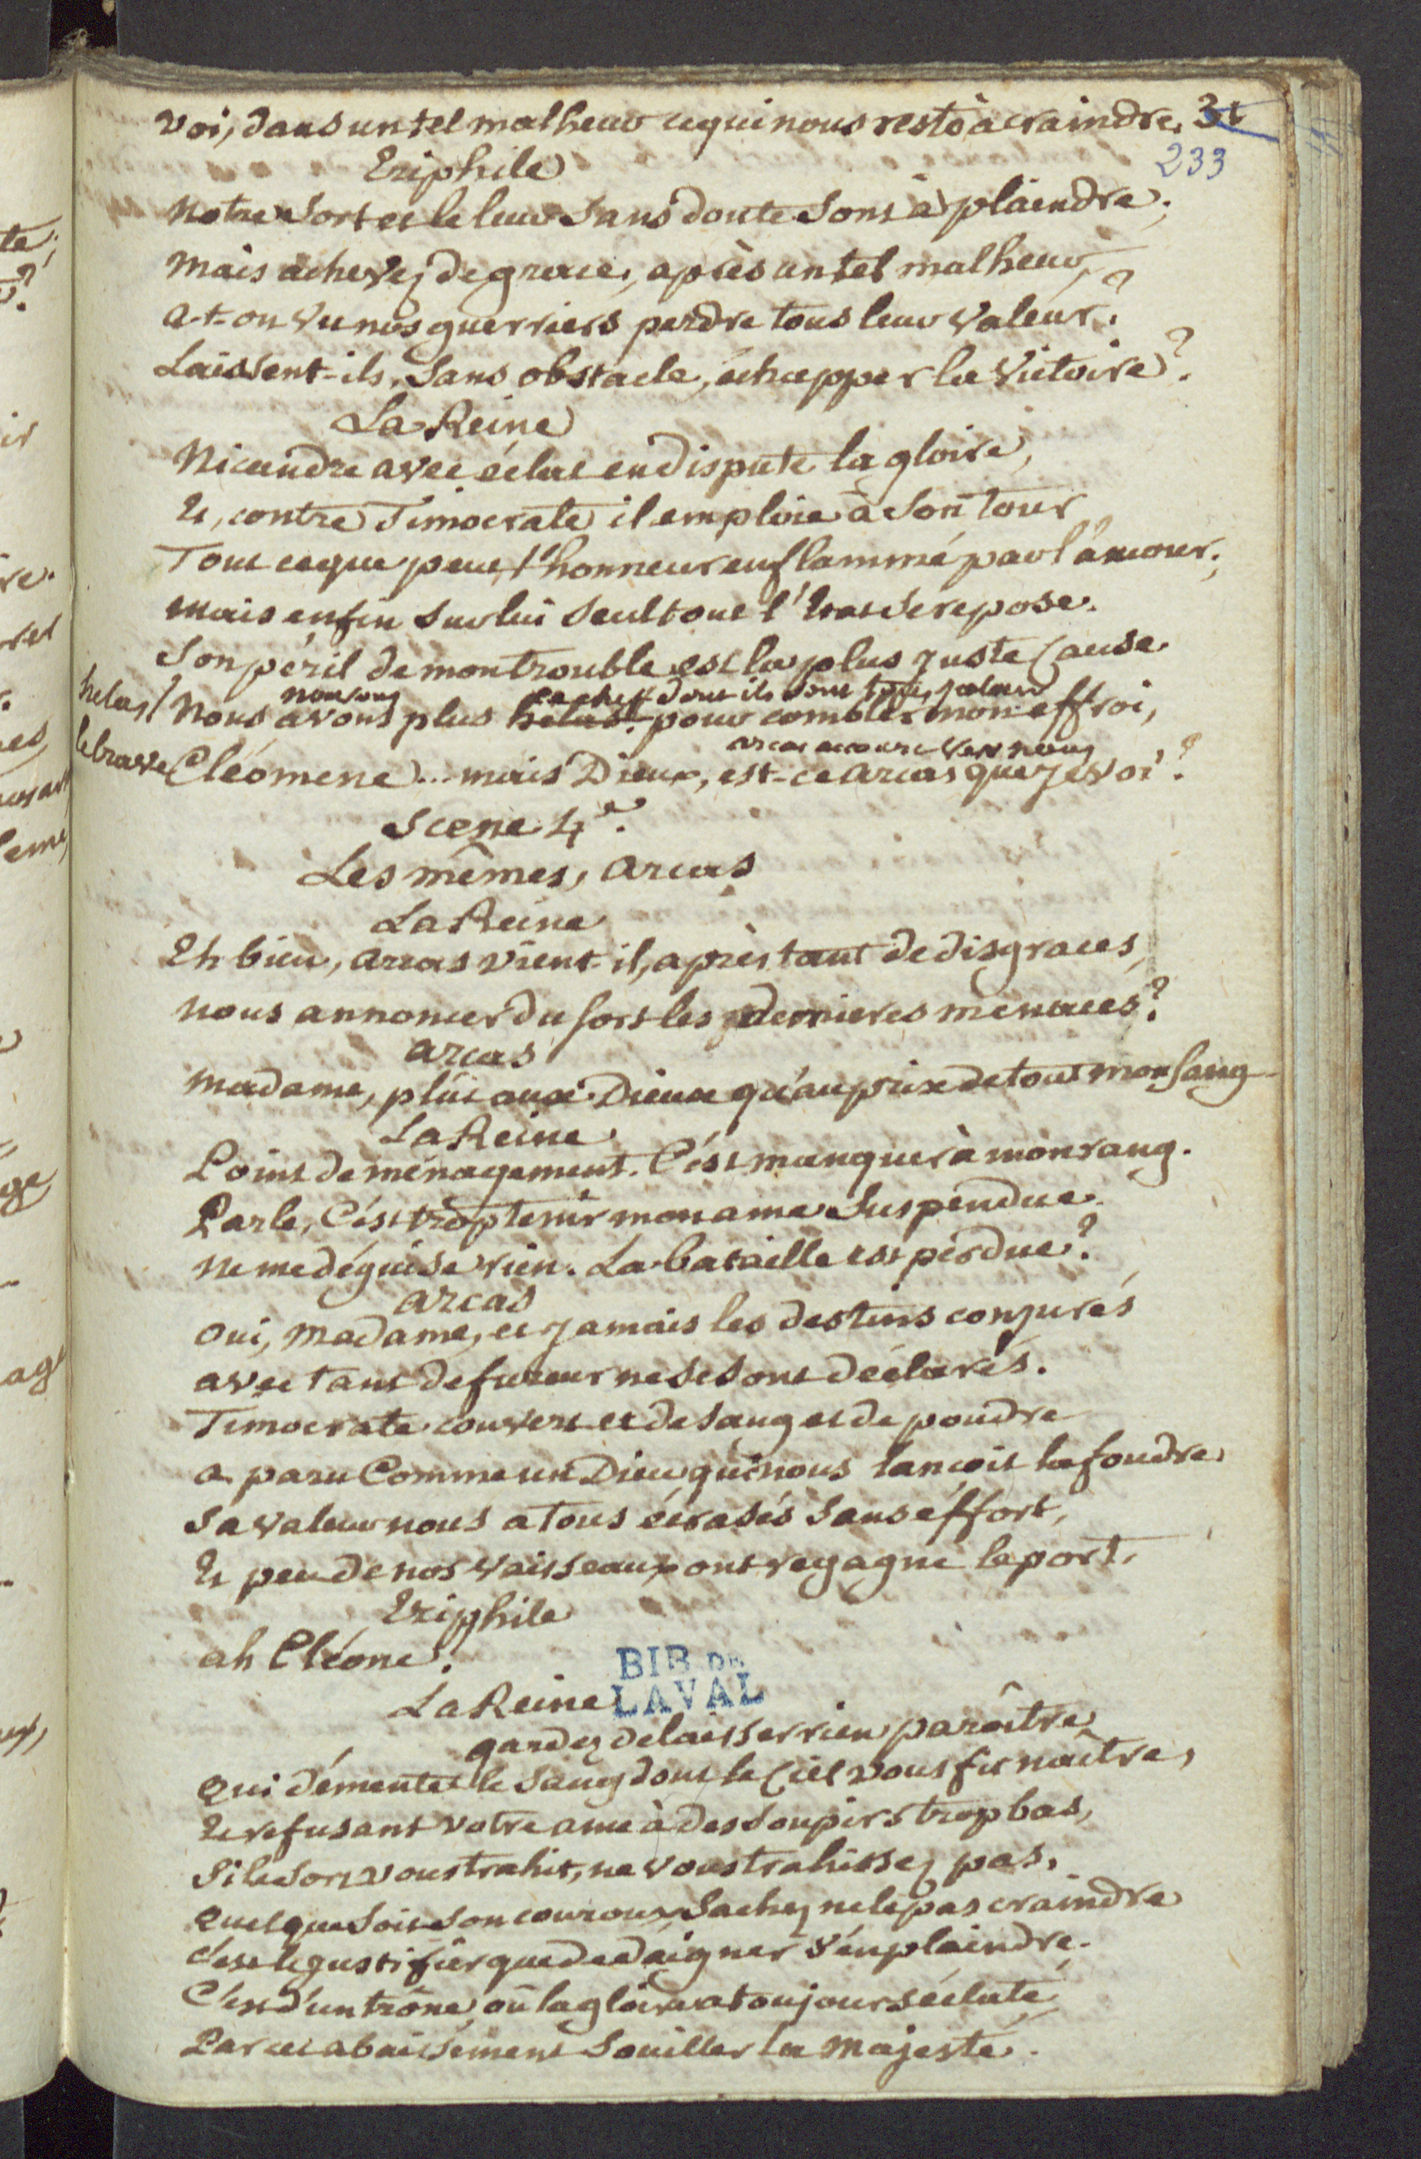 voi, dans un tel malheur ce qui nous reste à craindre. 31
233
Eriphile
Notre sort et le leur sans doute sont à plaindre;
Mais achevez de grace, après un tel malheur,
a-t-on vu nos guerriers perdre tous leur valeur?
Laissent-ils, sans obstacle, échapper la Victoire?
La Reine
Nicandre avec éclat en dispute la gloire,
Et, contre Timocrate il emploie à son tour
Tout ce que peut l'honneur enflammé par l'amour;
mais enfin sur lui seul tout l'Etat se repose.
Son péril de mon trouble est la plus juste Cause.
nous ce chef dont ils sont tous
helas! Nous avons plus helas! pour combler mon effroi,
arcas accourt vers nous
le brave Cléomene... mais Dieux, est-ce arcas que je voi?
Scene 4e.
Les mêmes, arcas
La Reine
Eh bien, arcas vient-il, après tant de disgraces,
nous annoncer du sort les dernieres menaces?
arcas
madame, plut aux Dieux qu'au prix de tout mon sang
La Reine
Point de ménagement. C'est manquer à mon rang.
Parle, C'est trop tenir mon ame suspendue.
Ne me déguise rien. La bataille est perdue?
arcas
oui, Madame, et jamais les destins conjurés
avec tant de fureur ne se sont déclarés.
Timocrate couvert et de sang et de poudre
a paru Comme un Dieu qui nous lançoit la foudre.
Sa valeur nous a tous écrasés sans effort,
Et peu de nos vaisseaux ont regagné le port.
Eriphile
ah Cléone!
BIB DE
LAVAL
La Reine
gardez de laisser rien paroître
Qui démente le sang dont le Ciel vous fit naître,
Et refusant votre ame à des soupirs trop bas,
Si le Sort vous trahit, ne vous trahissez pas.
Quel que soit son couroux, Sachez ne le pas craindre
c'est le justifier que de daigner s'en plaindre.
C'est d'un trône, où la gloire a toujours éclaté,
Par cet abaissement Souiller la Majesté.